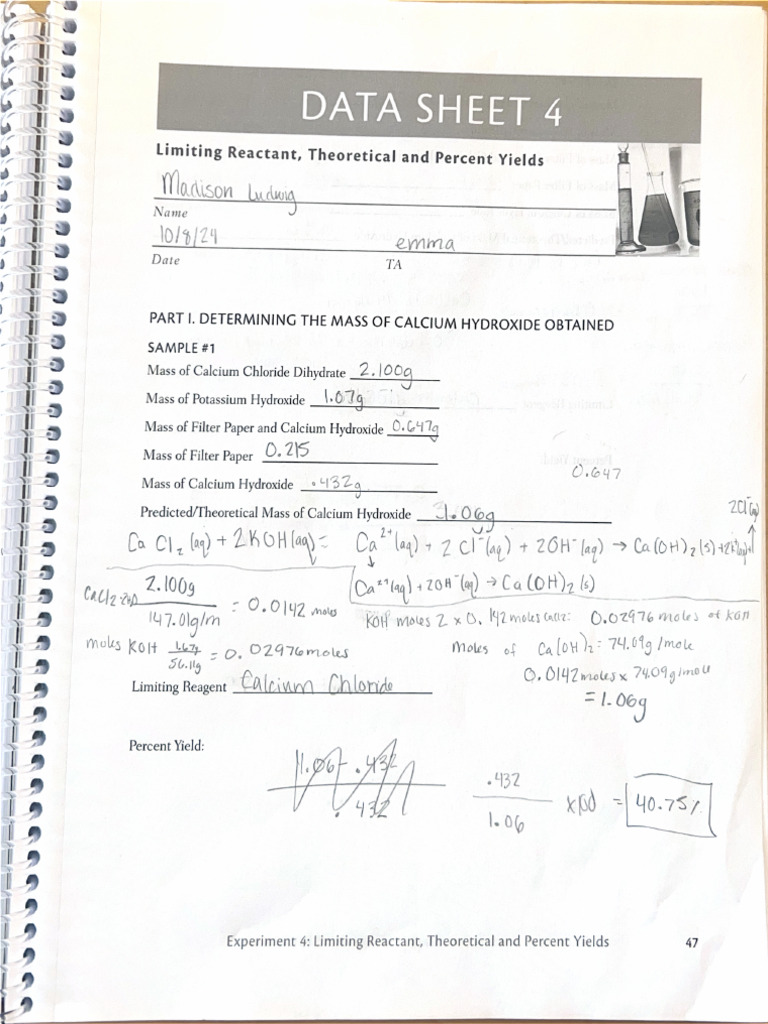 DATA SHEET 4
Limiting Reactant, Theoretical and Percent Yields
Madison Ludwig
Name
10/8/24 emma
Date TA
PART I. DETERMINING THE MASS OF CALCIUM HYDROXIDE OBTAINED
SAMPLE #1
Mass of Calcium Chloride Dihydrate 2.100g
Mass of Potassium Hydroxide 1.07g
Mass of Filter Paper and Calcium Hydroxide 0.647g
Mass of Filter Paper 0.215
0.647
Mass of Calcium Hydroxide .432g
Predicted/Theoretical Mass of Calcium Hydroxide 1.06g
2Cl⁻(aq)
CaCl₂(aq) + 2KOH(aq) = Ca²⁺(aq) + 2Cl⁻(aq) + 2OH⁻(aq) → Ca(OH)₂(s) +
Ca²⁺(aq) + 2OH⁻(aq) → Ca(OH)₂(s)
2.100g
147.01g/m = 0.0142 moles
KOH moles 2 x 0.142 moles CaCl2: 0.02976 moles of KOH
moles KOH 1.67g
56.11g = 0.02976 moles
Moles of Ca(OH)₂ = 74.09g/mole
0.0142 moles x 74.09g/mole
= 1.06g
Limiting Reagent Calcium Chloride
Percent Yield:
1.06 - .432
.432
.432
1.06 x100 = 40.75%
Experiment 4: Limiting Reactant, Theoretical and Percent Yields 47